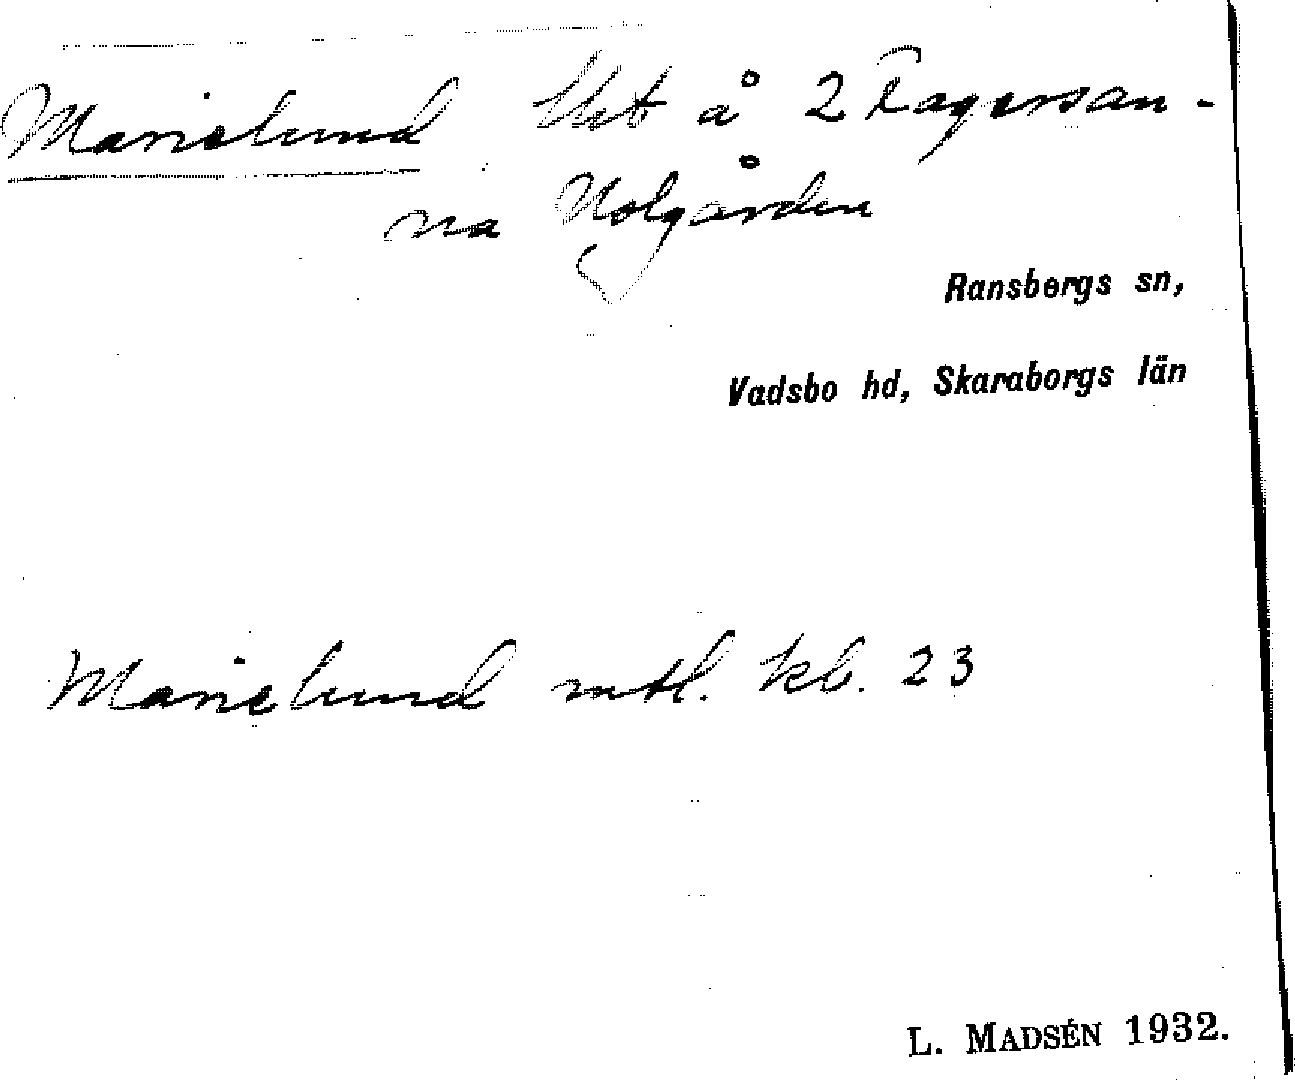 Marielund lht å 2 Fagersan-
na Nolgården
Ransbergs sn,
Vadsbo hd, Skaraborgs län
Marielund mtl. kb. 23
L. MADSÉN 1932.